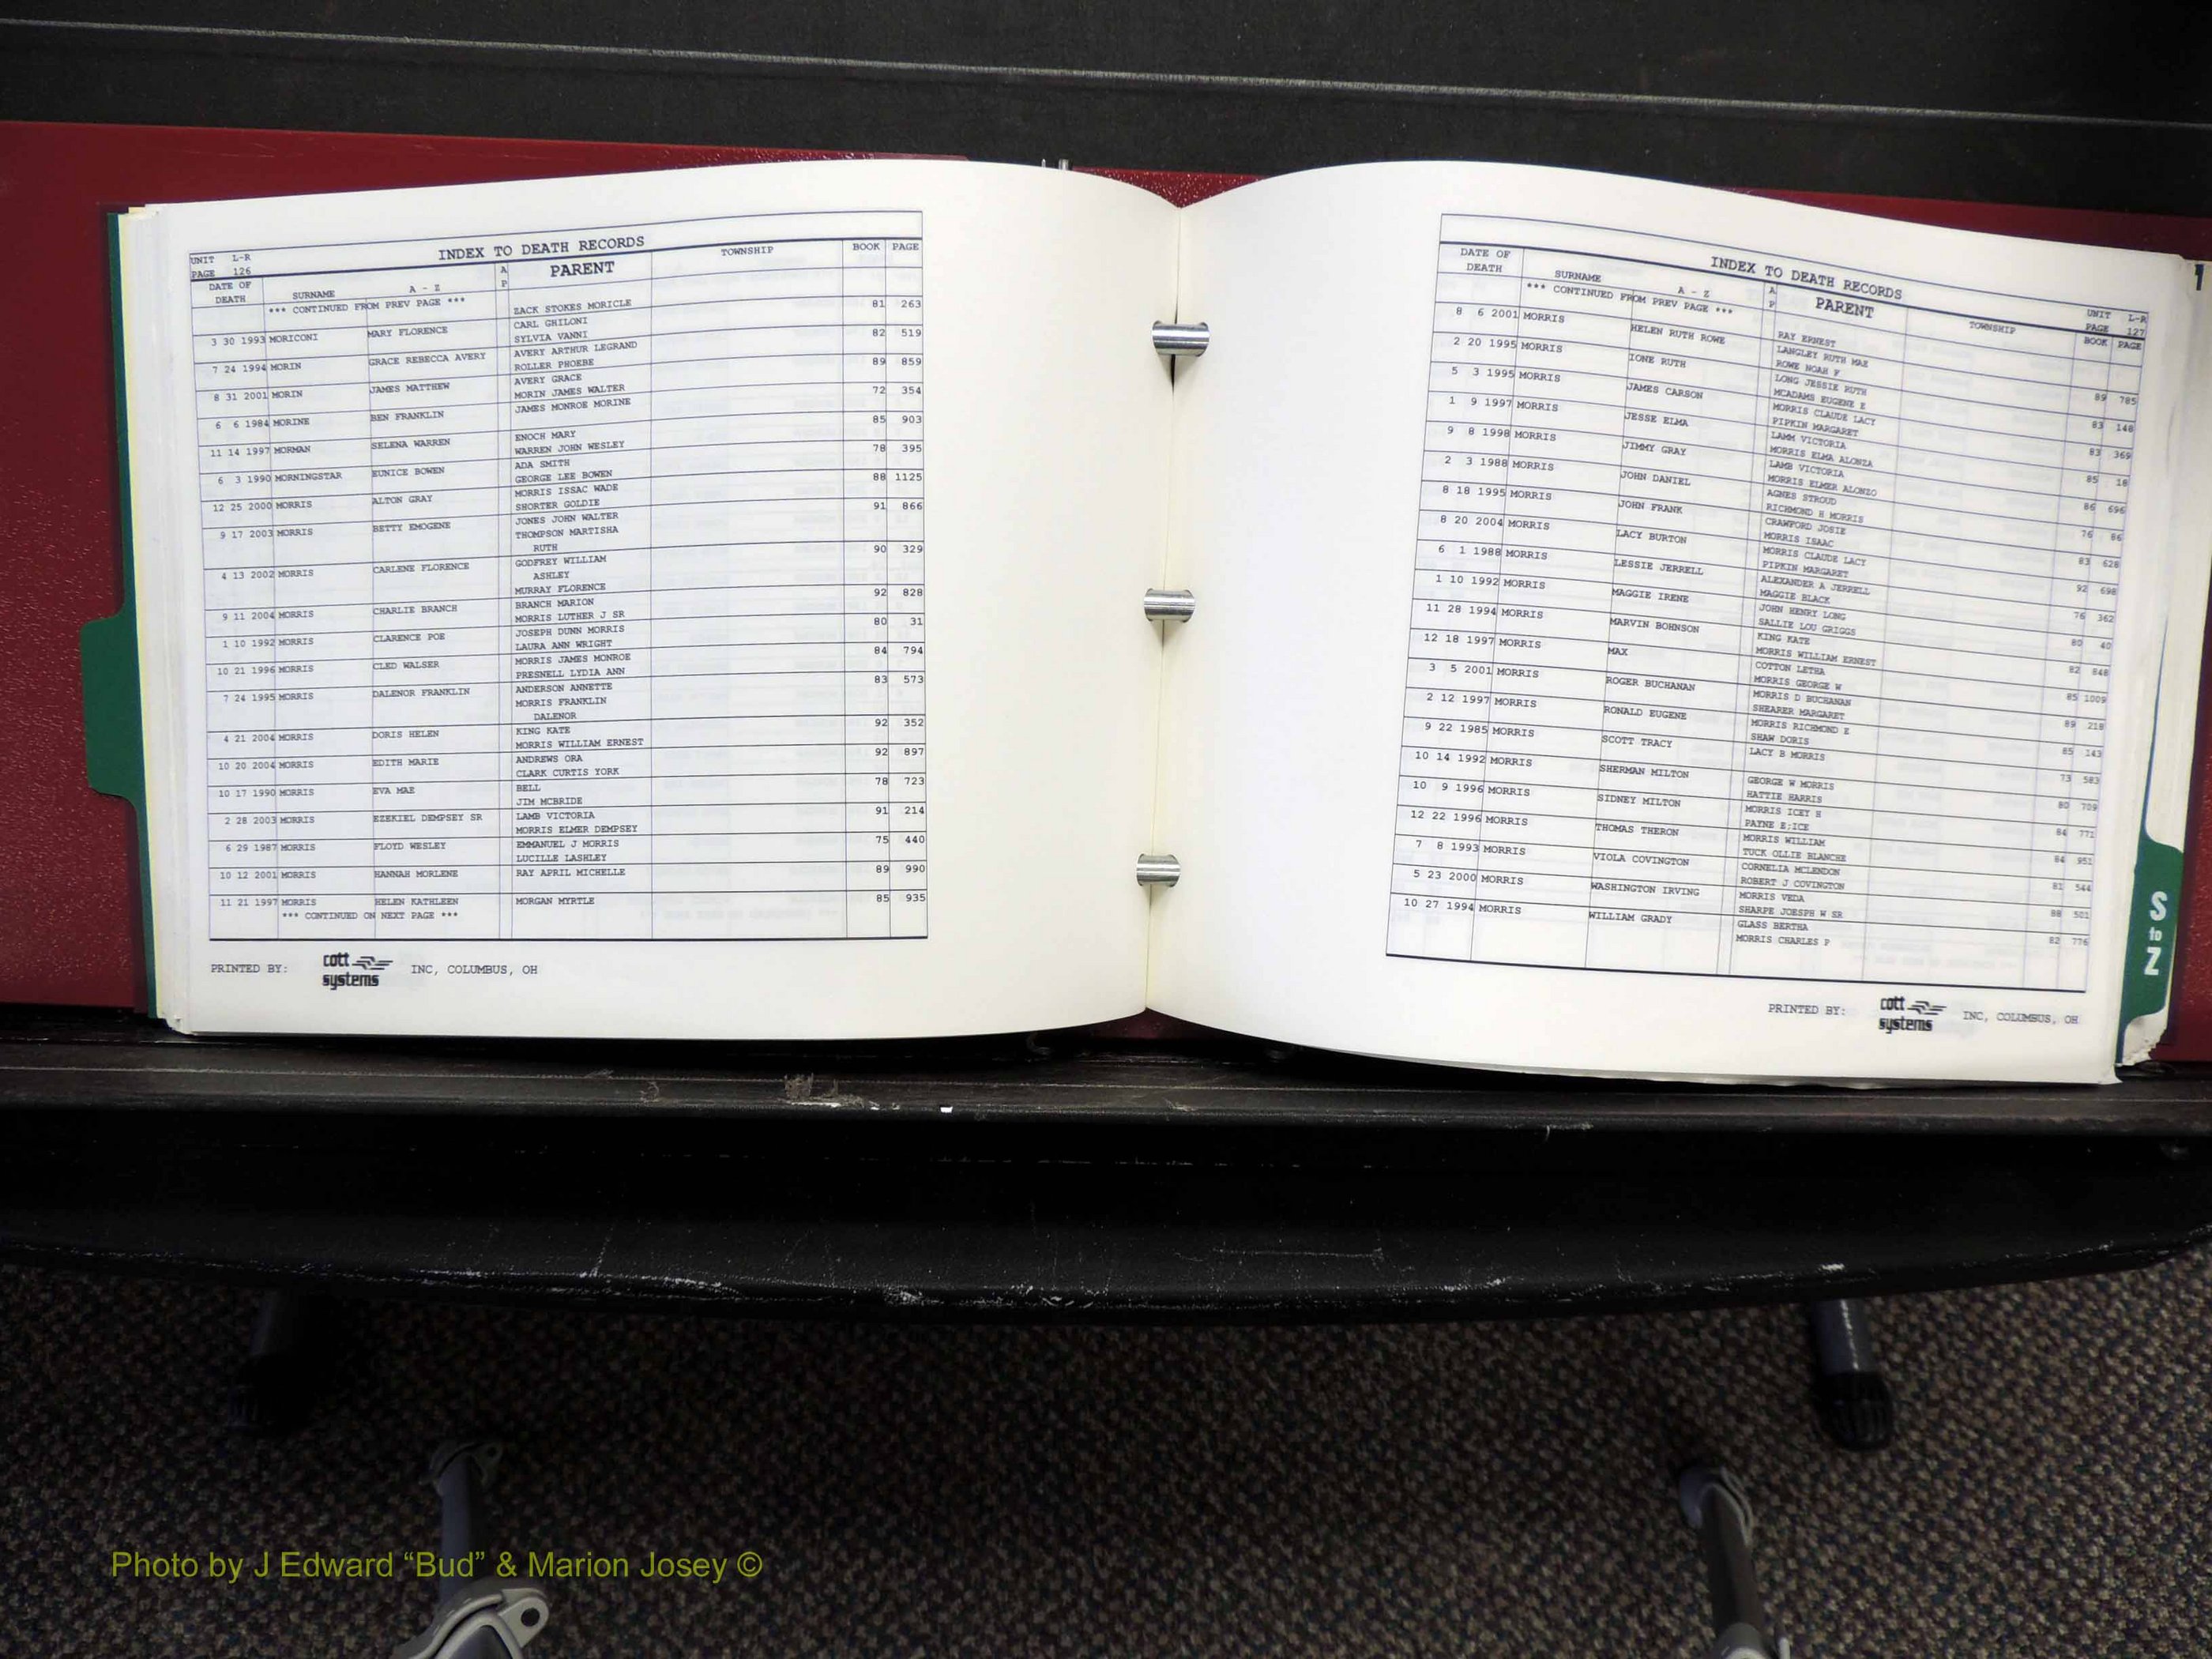 INDEX TO DEATH RECORDS
UNIT L-R
PAGE 126
DATE OF DEATH SURNAME A - Z A P PARENT TOWNSHIP BOOK PAGE
*** CONTINUED FROM PREV PAGE ***
ZACK STOKES MORICLE
3 30 1993 MORICONI MARY FLORENCE CARL GHILONI 81 263
SYLVIA VANNI
7 24 1994 MORIN GRACE REBECCA AVERY AVERY ARTHUR LEGRAND 82 519
ROLLER PHOEBE
8 31 2001 MORIN JAMES MATTHEW AVERY GRACE 89 859
MORIN JAMES WALTER
6 6 1984 MORINE BEN FRANKLIN JAMES MONROE MORINE 72 354
11 14 1997 MORMAN SELENA WARREN ENOCH MARY 85 903
WARREN JOHN WESLEY
6 3 1990 MORNINGSTAR EUNICE BOWEN ADA SMITH 78 395
GEORGE LEE BOWEN
12 25 2000 MORRIS ALTON GRAY MORRIS ISSAC WADE 88 1125
SHORTER GOLDIE
9 17 2003 MORRIS BETTY EMOGENE JONES JOHN WALTER 91 866
THOMPSON MARTISHA
RUTH
4 13 2002 MORRIS CARLENE FLORENCE GODFREY WILLIAM 90 329
ASHLEY
MURRAY FLORENCE
9 11 2004 MORRIS CHARLIE BRANCH BRANCH MARION 92 828
MORRIS LUTHER J SR
1 10 1992 MORRIS CLARENCE POE JOSEPH DUNN MORRIS 80 31
LAURA ANN WRIGHT
10 21 1996 MORRIS CLED WALSER MORRIS JAMES MONROE 84 794
PRESNELL LYDIA ANN
7 24 1995 MORRIS DALENOR FRANKLIN ANDERSON ANNETTE 83 573
MORRIS FRANKLIN
DALENOR
4 21 2004 MORRIS DORIS HELEN KING KATE 92 352
MORRIS WILLIAM ERNEST
10 20 2004 MORRIS EDITH MARIE ANDREWS ORA 92 897
CLARK CURTIS YORK
10 17 1990 MORRIS EVA MAE BELL 78 723
JIM MCBRIDE
2 28 2003 MORRIS EZEKIEL DEMPSEY SR LAMB VICTORIA 91 214
MORRIS ELMER DEMPSEY
6 29 1987 MORRIS FLOYD WESLEY EMMANUEL J MORRIS 75 440
LUCILLE LASHLEY
10 12 2001 MORRIS HANNAH MORLENE RAY APRIL MICHELLE 89 990
11 21 1997 MORRIS HELEN KATHLEEN MORGAN MYRTLE 85 935
*** CONTINUED ON NEXT PAGE ***
PRINTED BY: cott systems INC, COLUMBUS, OH
INDEX TO DEATH RECORDS
UNIT L-R
PAGE 127
DATE OF DEATH SURNAME A - Z A P PARENT TOWNSHIP BOOK PAGE
*** CONTINUED FROM PREV PAGE ***
RAY ERNEST
8 6 2001 MORRIS HELEN RUTH ROWE LANGLEY RUTH MAE 89 785
ROWE NOAH F
2 20 1995 MORRIS IONE RUTH LONG JESSIE RUTH 83 148
MCADAMS EUGENE E
5 3 1995 MORRIS JAMES CARSON MORRIS CLAUDE LACY 83 369
PIPKIN MARGARET
1 9 1997 MORRIS JESSE ELMA LAMM VICTORIA 85 18
MORRIS ELMA ALONZA
9 8 1998 MORRIS JIMMY GRAY LAMB VICTORIA 86 696
MORRIS ELMER ALONZO
2 3 1988 MORRIS JOHN DANIEL AGNES STROUD 76 86
RICHMOND H MORRIS
8 18 1995 MORRIS JOHN FRANK CRAWFORD JOSIE 83 628
MORRIS ISAAC
8 20 2004 MORRIS LACY BURTON MORRIS CLAUDE LACY 92 698
PIPKIN MARGARET
6 1 1988 MORRIS LESSIE JERRELL ALEXANDER A JERRELL 76 362
MAGGIE BLACK
1 10 1992 MORRIS MAGGIE IRENE JOHN HENRY LONG 80 40
SALLIE LOU GRIGGS
11 28 1994 MORRIS MARVIN BOHNSON KING KATE 82 848
MORRIS WILLIAM ERNEST
12 18 1997 MORRIS MAX COTTON LETHA 85 1009
MORRIS GEORGE W
3 5 2001 MORRIS ROGER BUCHANAN MORRIS D BUCHANAN 89 218
SHEARER MARGARET
2 12 1997 MORRIS RONALD EUGENE MORRIS RICHMOND E 85 143
SHAW DORIS
9 22 1985 MORRIS SCOTT TRACY LACY B MORRIS 73 583
10 14 1992 MORRIS SHERMAN MILTON GEORGE W MORRIS 80 709
HATTIE HARRIS
10 9 1996 MORRIS SIDNEY MILTON MORRIS ICEY H 84 771
PAYNE E;ICE
12 22 1996 MORRIS THOMAS THERON MORRIS WILLIAM 84 951
TUCK OLLIE BLANCHE
7 8 1993 MORRIS VIOLA COVINGTON CORNELIA MCLENDON 81 544
ROBERT J COVINGTON
5 23 2000 MORRIS WASHINGTON IRVING MORRIS VEDA 88 501
SHARPE JOESPH W SR
10 27 1994 MORRIS WILLIAM GRADY GLASS BERTHA 82 776
MORRIS CHARLES P
PRINTED BY: cott systems INC, COLUMBUS, OH
S to Z
Photo by J Edward “Bud” & Marion Josey ©